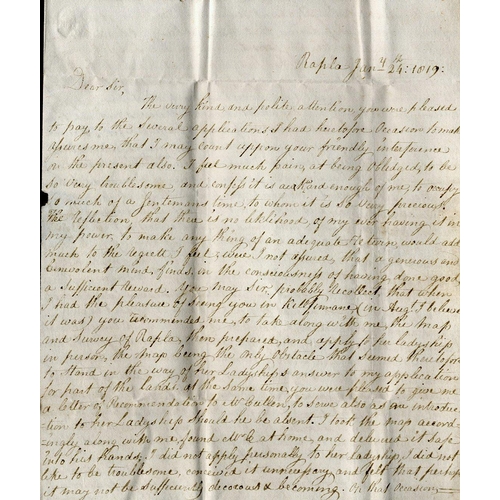 Rapla Jany 24th: 1819:
Dear Sir,
The very kind and polite attention you were pleased
to pay to the several applications I had heretofore Occasion to make
assures me, that I may count uppon your friendly interference
in the present also. I feel much pain, at being Obledged, to be
so very troublesome and confess it is awkard enough of me, to occupy
so much of a jentlemans time, to whom it is so very precious.
The reflection that thea is no likelihood of my ever having it in
my power, to make any thing of an adequate Return, would add
much to the regrett I feel, were I not assured, that a generous and
Benivolent mind, finds, in the consciousness of having done good
a Sufficient Reward. You may Sir, probably Recollect that when
I had the pleasure of seeing you in (in Augt I believe
it was) you recommended me, to take along with me, the map
and Survey of Rapla, then prepared, and apply to her Ladyship
in person, the map being the only Obstacle that seemed theretofore
to stand in the way of her Ladyships answer to my application
for part of the lands. at the Same time, you were pleased to give me
a letter of Recommendation to Mr to Sowe also as an introduc
tion to her Ladyship should he be absent. I took the map accord
ingly along with me, found Mr at home, and delivered it safe
into his Hands, I did not apply personally to her Ladyship, I did not
like to be troublesome, conceived it unnecessary and felt that perhaps
it may not be sufficiently decorous & becoming. On that Occasion,